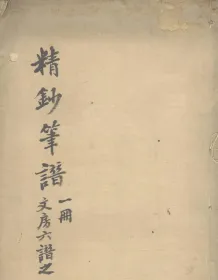 精鈔筆譜
一冊
文房六譜之